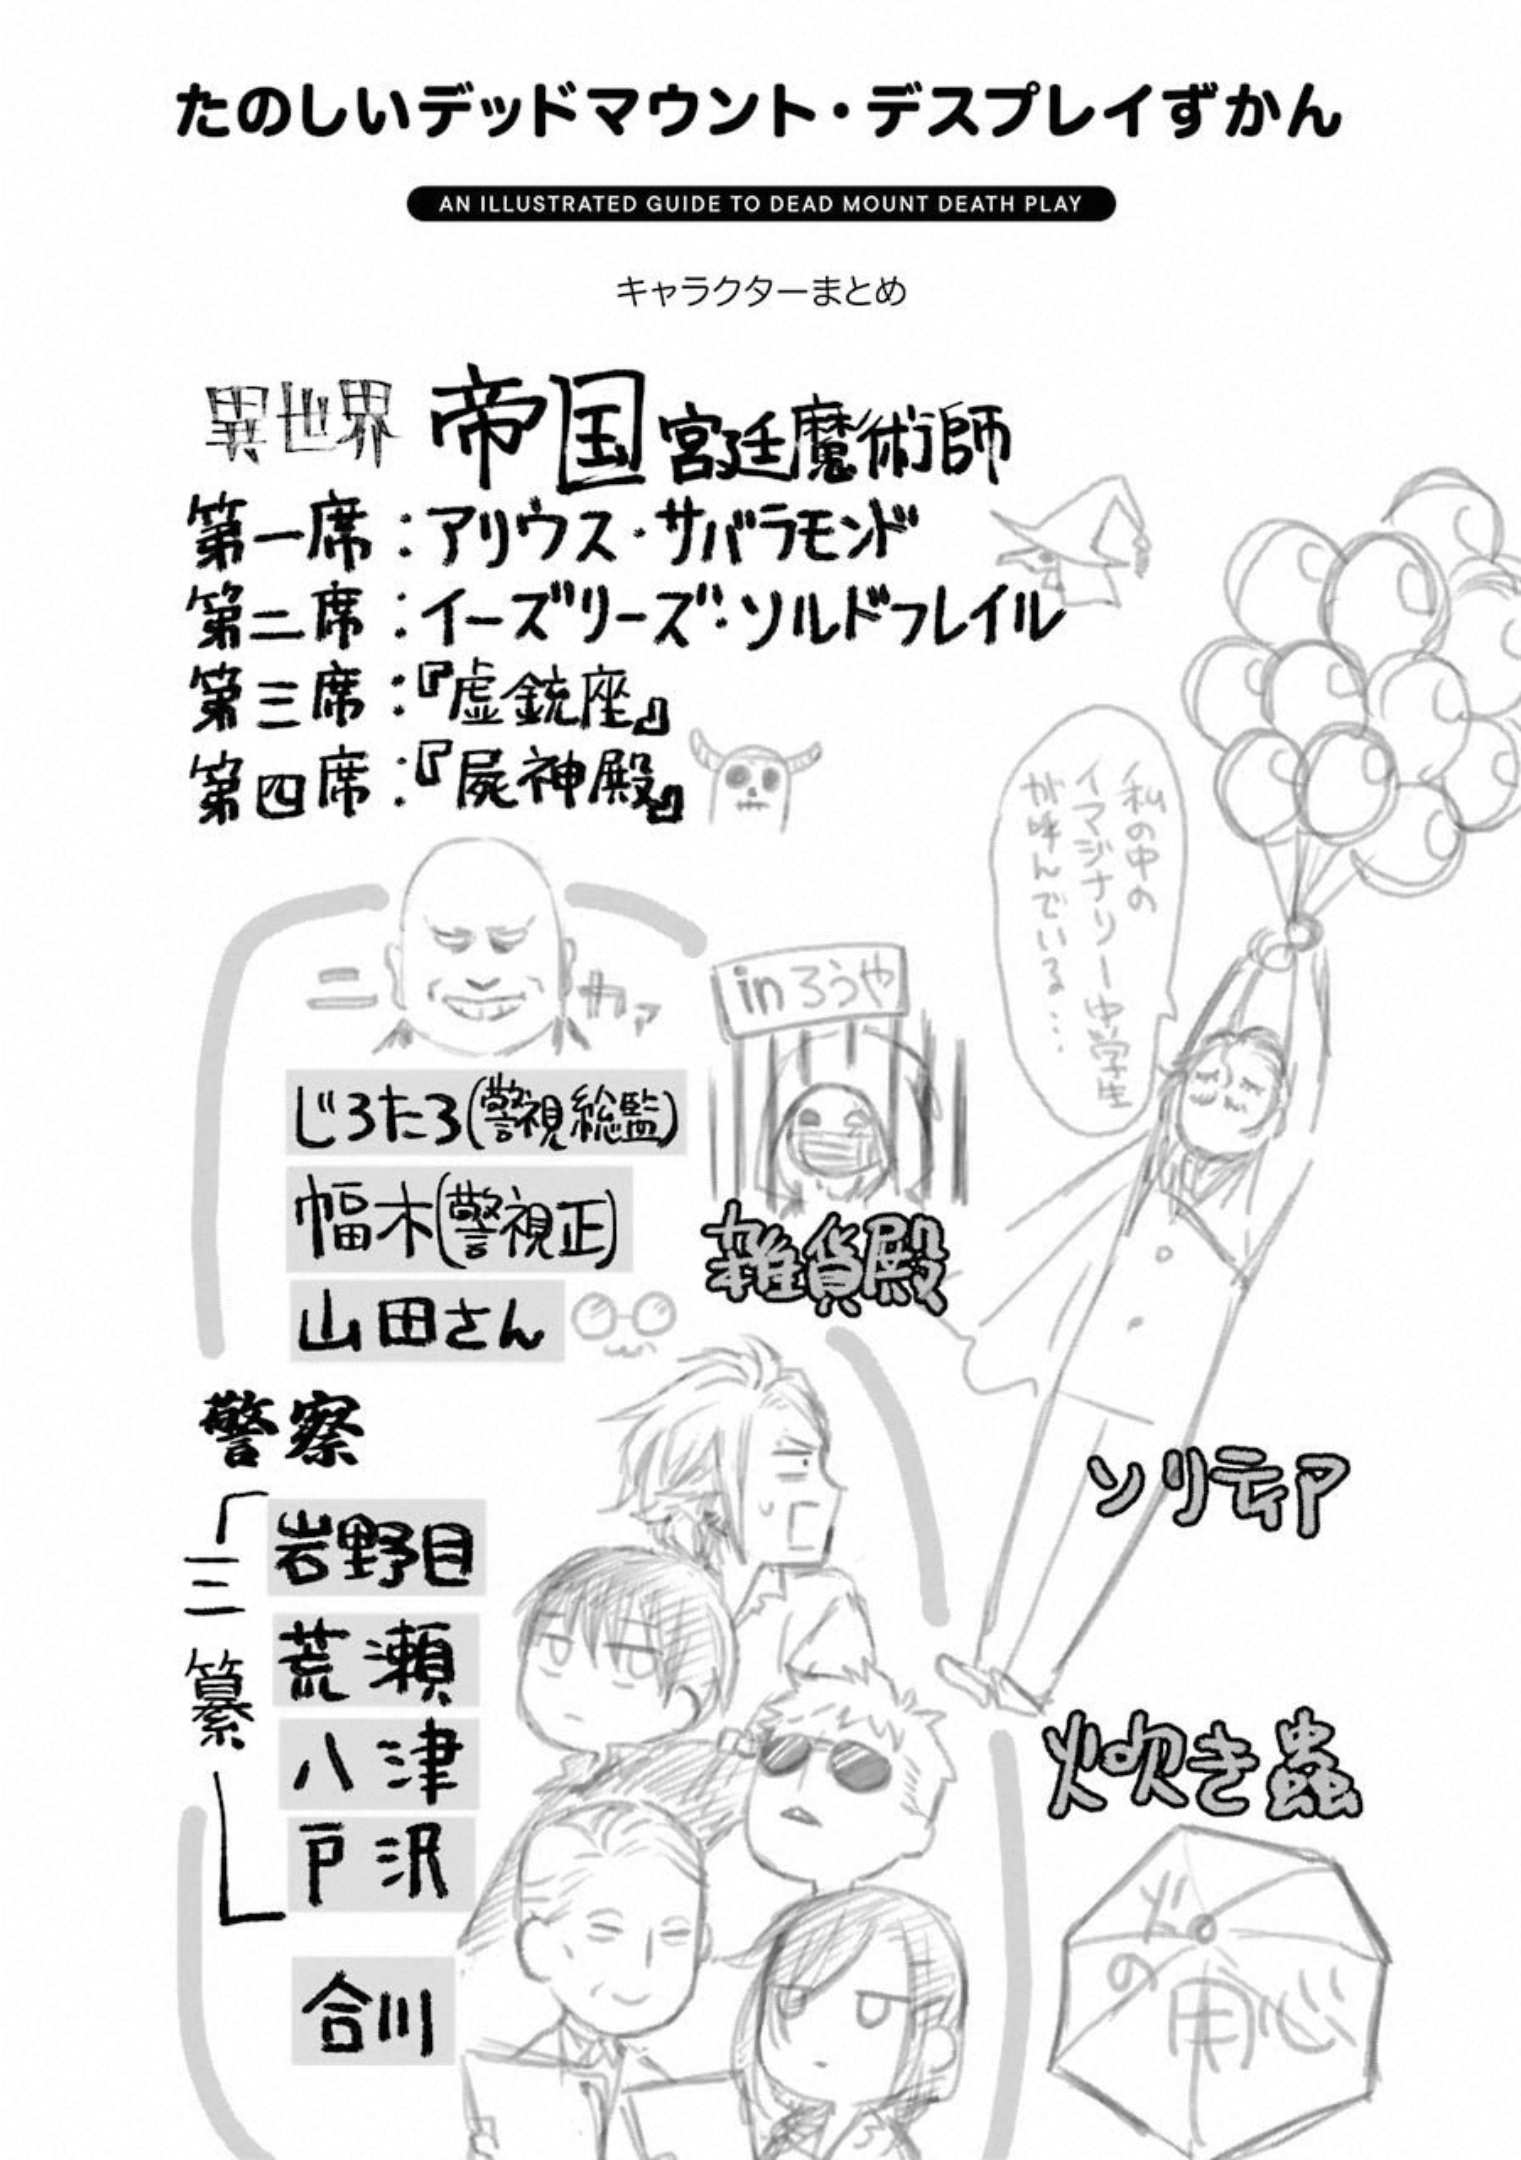 たのしいデッドマウント・デスプレイずかん
AN ILLUSTRATED GUIDE TO DEAD MOUNT DEATH PLAY
キャラクターまとめ
異世界 帝国 宮廷魔術師
第一席：アリウス・サバラモンド
第二席：イーズリーズ・ソルドフレイル
第三席：『虚銃座』
第四席：『屍神殿』
私の中の
イマジナリー中学生
が呼んでいる…
ニカァ
inろうや
じろたろ(警視総監)
幅木(警視正)
雑貨殿
山田さん
警察
「三纂」
岩野目
荒瀬
八津
戸沢
合川
ソリティア
炊き蟲
火の用心